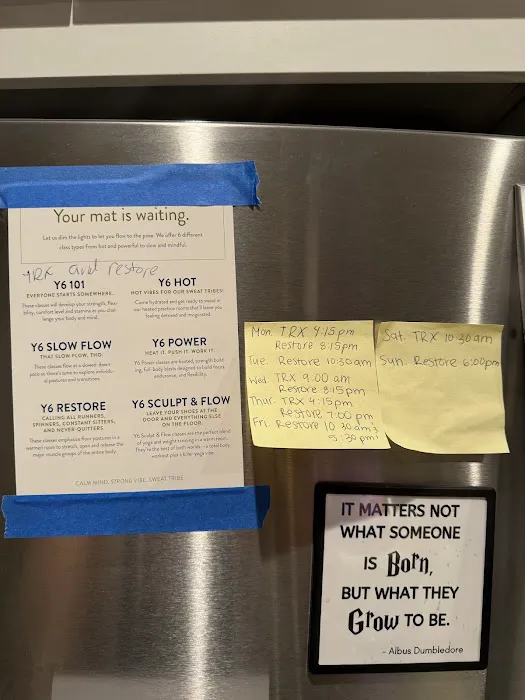 Your mat is waiting.
Let us dim the lights to let you flow to the pose. We offer 6 different
class types from hot and powerful to slow and mindful.
TRX and restore
Y6 101
EVERYONE STARTS SOMEWHERE.
These classes will develop your strength, flexi-
bility, comfort level and stamina as you chal-
lenge your body and mind.
Y6 HOT
HOT VIBES FOR OUR SWEAT TRIBES!
Come hydrated and get ready to sweat in
our heated practice rooms that'll leave you
feeling detoxed and invigorated.
Y6 SLOW FLOW
THAT SLOW FLOW, THO.
These classes flow at a slowed-down
pace so there's time to explore individu-
al postures and transitions.
Y6 POWER
HEAT IT. PUSH IT. WORK IT.
Y6 Power classes are heated, strength build-
ing, full-body levels designed to build focus,
endurance, and flexibility.
Y6 RESTORE
CALLING ALL RUNNERS,
SPINNERS, CONSTANT SITTERS,
AND NEVER-QUITTERS.
These classes emphasize floor postures in a
warmed room to stretch, open and release the
major muscle groups of the entire body.
Y6 SCULPT & FLOW
LEAVE YOUR SHOES AT THE
DOOR AND EVERYTHING ELSE
ON THE FLOOR.
Y6 Sculpt & Flow classes are the perfect blend
of yoga and weight training in a warm room.
They're the best of both worlds - a total body
workout plus a killer yoga vibe.
CALM MIND. STRONG VIBE. SWEAT TRIBE.
Mon. TRX 4:15pm
Restore 8:15pm
Tue. Restore 10:30am
Wed. TRX 9:00 am
Restore 8:15pm
Thur. TRX 4:15pm
Restore 7:00 pm
Fri. Restore 10:30am &
5:30pm
Sat. TRX 10:30am
Sun. Restore 6:00pm
IT MATTERS NOT
WHAT SOMEONE
IS Born,
BUT WHAT THEY
Grow TO BE.
- Albus Dumbledore